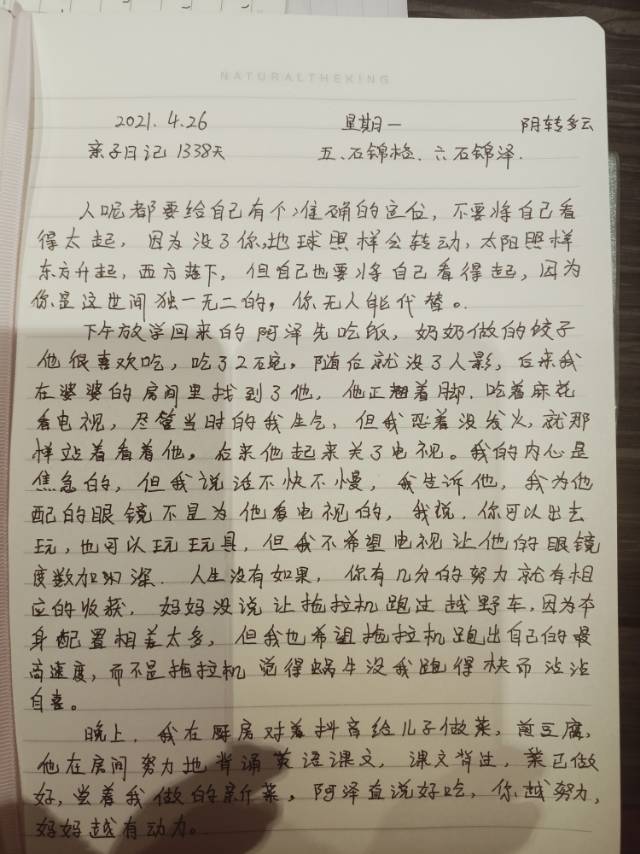 NATURALTHEKING
2021. 4.26 星期一 阴转多云
亲子日记 1338天 五.石锦格. 六石锦泽.
人呢都要给自己有个准确的定位，不要将自己看
得太起，因为没了你，地球照样会转动，太阳照样
东方升起，西方落下，但自己也要将自己看得起，因为
你是这世间独一无二的，你无人能代替。
下午放学回来的阿泽先吃饭，奶奶做的饺子
他很喜欢吃，吃了2碗，随后就没了人影，后来我
在婆婆的房间里找到了他，他正翘着脚.吃着麻花
看电视，尽管当时的我生气，但我忍着没发火，就那
样站着看着他，后来他起来关了电视。我的内心是
焦急的，但我说话不快不慢，我告诉他，我为他
配的眼镜不是为他看电视的，我说.你可以出去
玩，也可以玩玩具，但我不希望电视让他的眼镜
度数加的深. 人生没有如果，你有几分的努力就有相
应的收获，妈妈没说让拖拉机跑过越野车，因为本
身配置相差太多，但我也希望拖拉机跑出自己的最
高速度，而不是拖拉机觉得蜗牛没我跑得快而沾沾
自喜。
晚上.我在厨房对着抖音给儿子做菜，煎豆腐，
他在房间努力地背诵英语课文，课文背过，菜已做
好，尝着我做的新菜，阿泽直说好吃，你越努力，
妈妈越有动力。